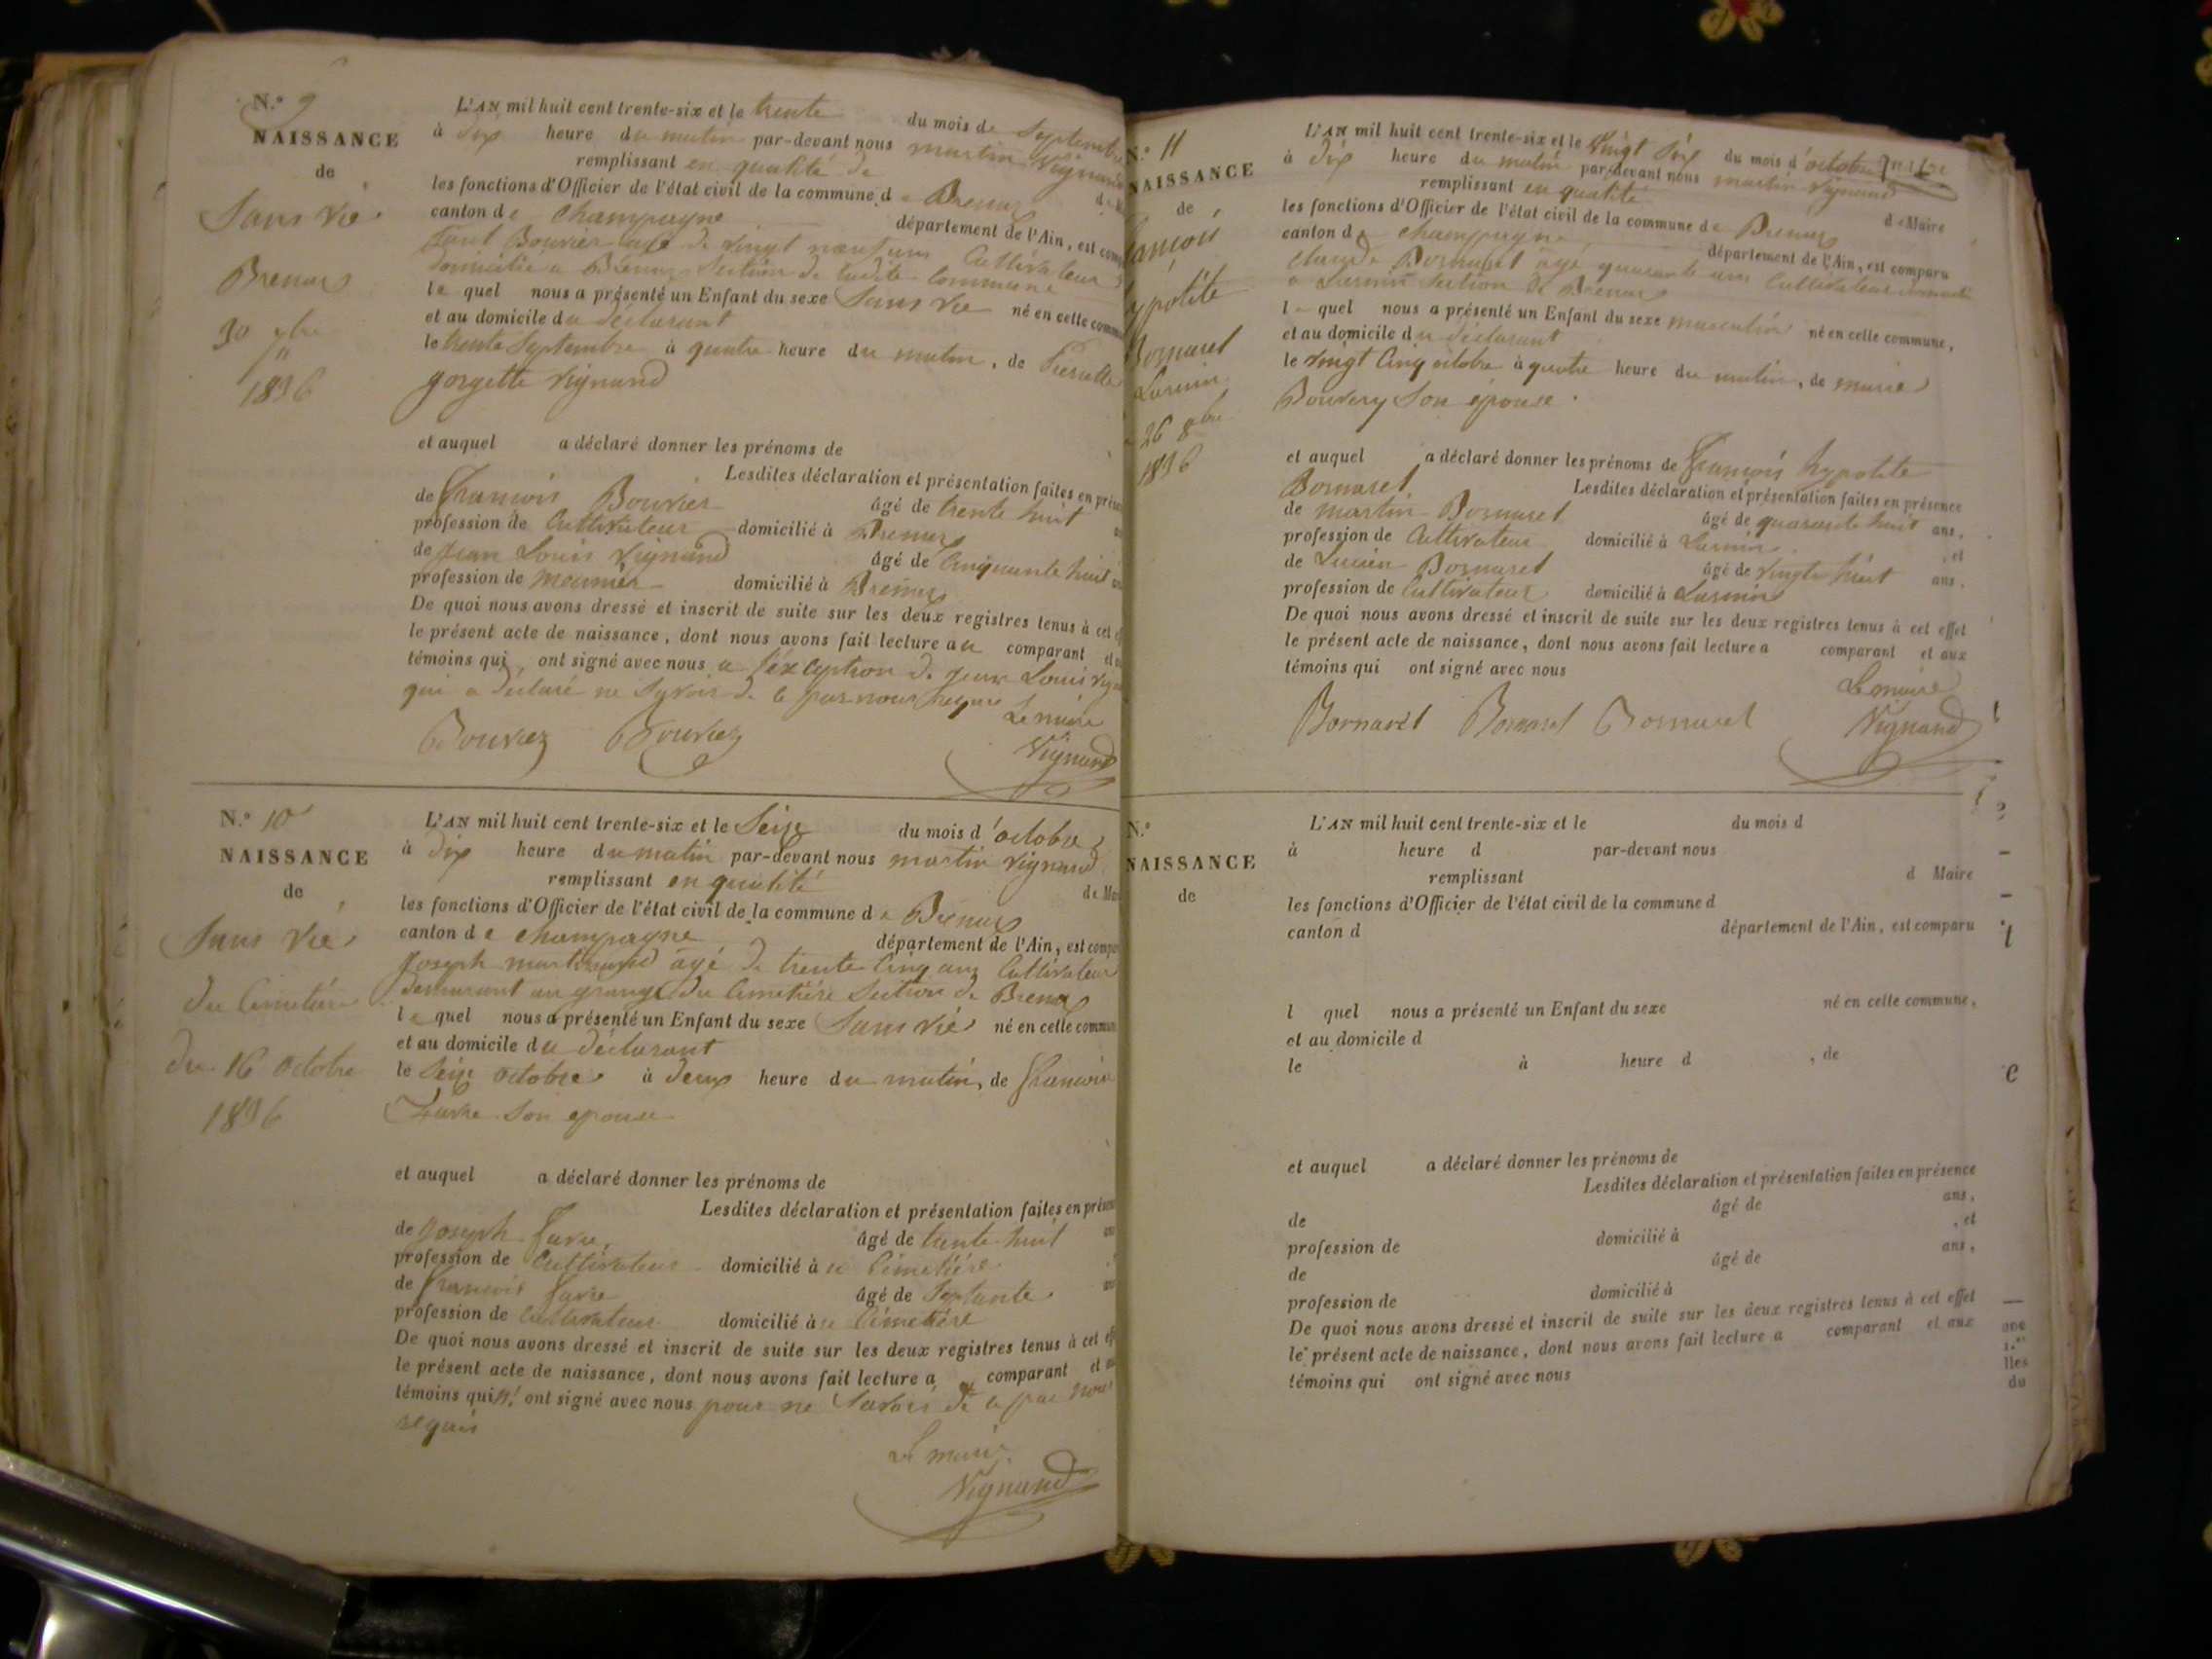 N.° 9
NAISSANCE
de
Sans vie
Brenas
30 7bre
1836
L'AN mil huit cent trente-six et le trente du mois de Septembre
à dix heure du matin par-devant nous martin Vignand
remplissant en qualité de
les fonctions d'Officier de l'état civil de la commune de Brenas
canton de Champagne département de l'Ain, est comp
Bouvier agé de vingt neuf ans Cultivateur
domicilié a Brenas Section de ladite Commune
le quel nous a présenté un Enfant du sexe Sans vie né en celle comm
et au domicile du déclarant
le trente Septembre à quatre heure du matin, de Pierrette
gorgette vignand
et auquel a déclaré donner les prénoms de
Lesdites déclaration et présentation faites en prése
de François Bouvier âgé de trente huit
profession de Cultivateur domicilié à Brenas
de Jean Louis vignand âgé de Cinquante huit
profession de meunier domicilié à Brenas
De quoi nous avons dressé et inscrit de suite sur les deux registres tenus à cet ef
le présent acte de naissance, dont nous avons fait lecture au comparant et
témoins qui ont signé avec nous a l'éxception de jean Louis vign
qui a déclaré ne Savoir de ce par nous requis
Le maire
Bouvier Bouvier Vignand
N.° 10
NAISSANCE
de
Sans vie
du Cimetière
du 16 octobre
1836
L'AN mil huit cent trente-six et le Seize du mois d'octobre
à dix heure du matin par-devant nous martin vignand
remplissant en qualité de Mai
les fonctions d'Officier de l'état civil de la commune de Brenas
canton de champagne département de l'Ain, est compa
Joseph âgé de trente Cinq ans Cultivateur
demeurant au grange du Cimetière Section de Brenas
le quel nous a présenté un Enfant du sexe Sans vie né en celle commun
et au domicile du déclarant
le Seize octobre à deux heure du matin, de françoise
favre Son epouse
et auquel a déclaré donner les prénoms de
Lesdites déclaration et présentation faites en présen
de joseph favre, âgé de trente huit
profession de Cultivateur domicilié à Cimetière
de françois favre âgé de Septante
profession de Cultivateur domicilié à Cimetière
De quoi nous avons dressé et inscrit de suite sur les deux registres tenus à cet ef
le présent acte de naissance, dont nous avons fait lecture a comparant et
témoins qui n' ont signé avec nous pour ne Savoir de ce par nous
requis
Le maire
Vignand
N.° 11
NAISSANCE
de
rançois
ypolite
Bornaret
Lusmin
26 8bre
1836
L'AN mil huit cent trente-six et le vingt six du mois d'octobre
à dix heure du matin par-devant nous martin vignand
remplissant en qualité de Maire
les fonctions d'Officier de l'état civil de la commune de Brenas
canton de champagne département de l'Ain, est comparu
claude Bornaret agé quarante ans Cultivateur
a Lusmin Section de Brénas
le quel nous a présenté un Enfant du sexe masculin né en celle commune,
et au domicile du déclarant
le vingt Cinq octobre à quatre heure du matin, de marie
Bouvery Son épouse.
et auquel a déclaré donner les prénoms de François hypolite
Bornaret Lesdites déclaration et présentation faites en présence
de martin Bornaret âgé de quarante huit ans,
profession de Cultivateur domicilié à Lusmin, et
de Lucien Bornaret âgé de vingt huit ans.
profession de Cultivateur domicilié à Lusmin
De quoi nous avons dressé et inscrit de suite sur les deux registres tenus à cet effet
le présent acte de naissance, dont nous avons fait lecture a comparant et aux
témoins qui ont signé avec nous
Le maire
Bornaret Bornaret Bornaret Vignand
N.°
NAISSANCE
de
L'AN mil huit cent trente-six et le du mois d
à heure d par-devant nous
remplissant d Maire
les fonctions d'Officier de l'état civil de la commune d
canton d département de l'Ain, est comparu
l quel nous a présenté un Enfant du sexe né en celle commune,
et au domicile d
le à heure d , de
et auquel a déclaré donner les prénoms de
Lesdites déclaration et présentation faites en présence
de âgé de ans,
profession de domicilié à , et
de âgé de ans,
profession de domicilié à
De quoi nous avons dressé et inscrit de suite sur les deux registres tenus à cet effet
le présent acte de naissance, dont nous avons fait lecture a comparant et aux
témoins qui ont signé avec nous